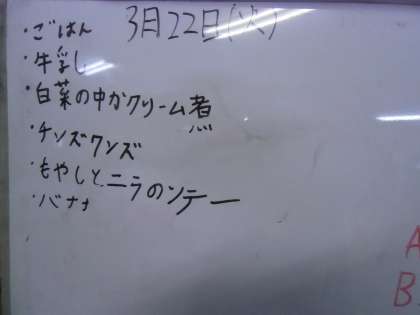 3月22日(火)
・ごはん
・牛乳
・白菜の中かクリーム煮
・チンズワンズ
・もやしとニラのソテー
・バナナ
A
B